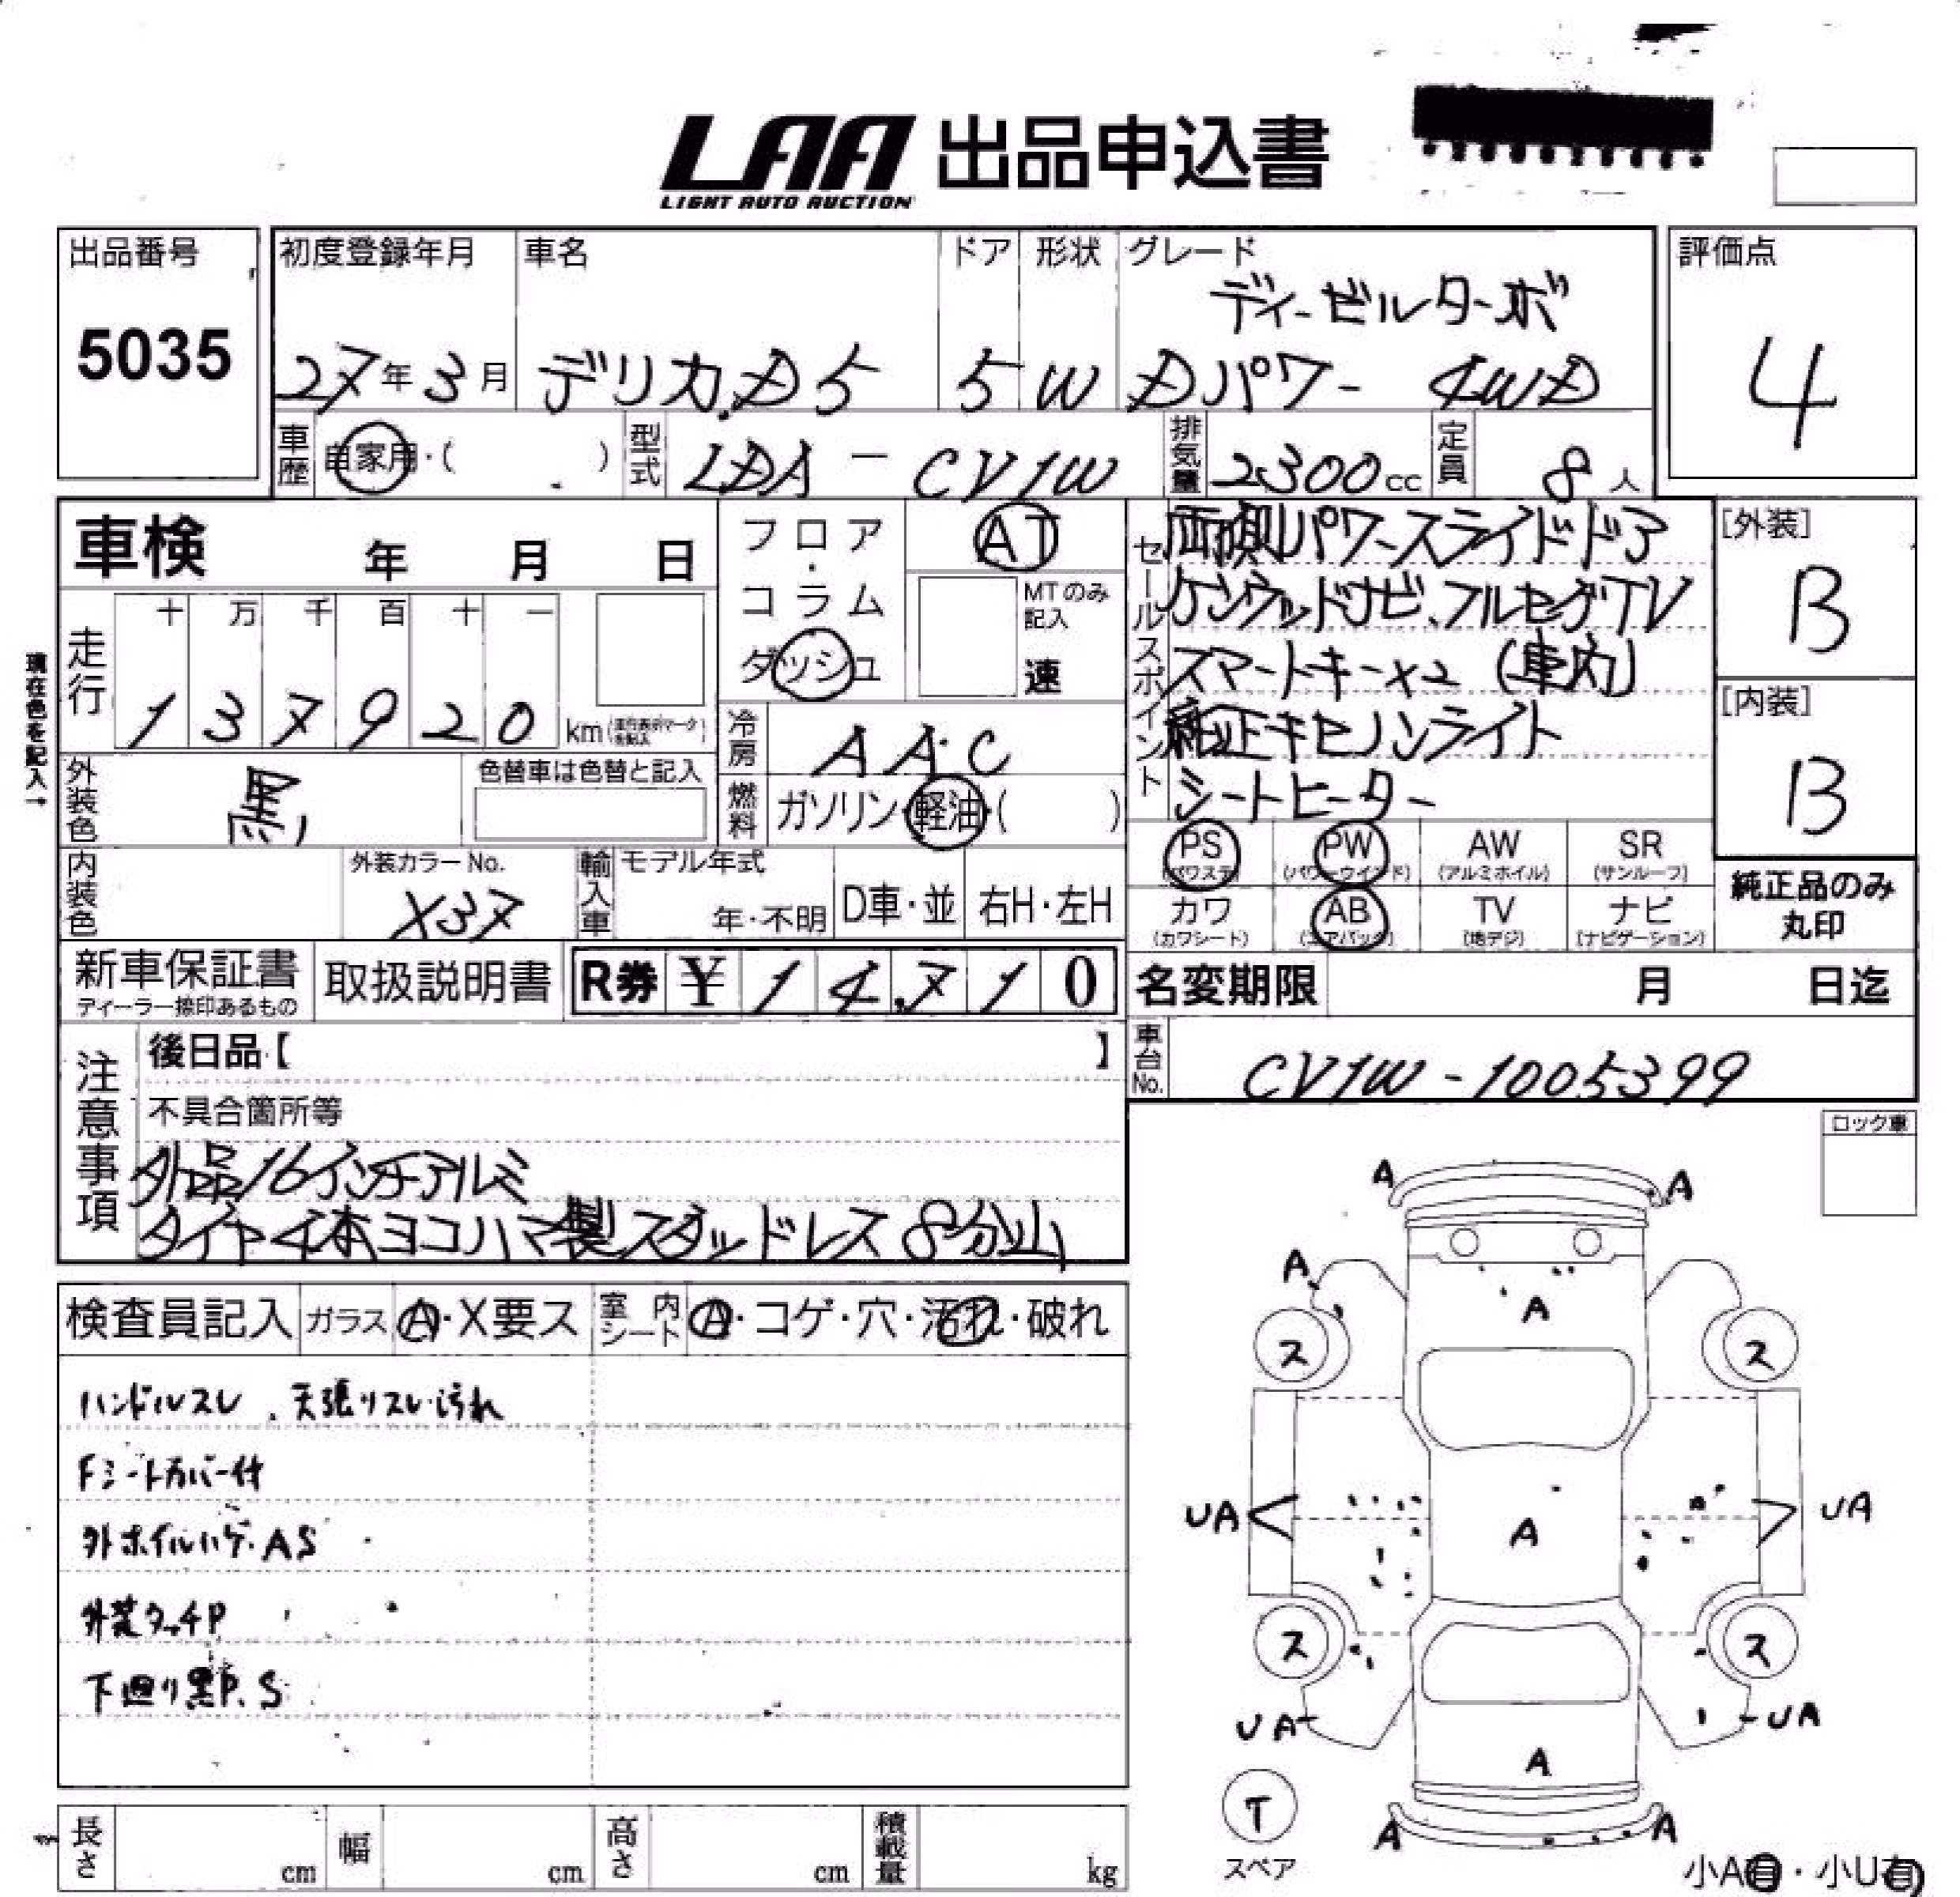 LAA 出品申込書
LIGHT AUTO AUCTION
出品番号
5035
初度登録年月
27年3月
車名
デリカ.D5
ドア
5
形状
W
グレード
ディーゼルターボ
Dパワー 4WD
評価点
4
車歴
自家用・( )
型式
LDA - CV1W
排気量
2300cc
定員
8人
車検 年 月 日
フロア・
コラム
ダッシュ
AT
MTのみ
記入
速
セールスポイント
両側パワースライドドア
ケンウッドナビ、フルセグTV
スマートキー×2 (車内)
純正キセノンライト
シートヒーター
[外装]
B
[内装]
B
現在色を記入→
走行
十 万 千 百 十 一
1 3 7 9 2 0 km
冷房
AAC
外装色
黒
色替車は色替と記入
燃料
ガソリン・軽油・( )
内装色
外装カラーNo.
X37
輸入車
モデル年式
年・不明
D車・並
右H・左H
PS
(パワステ)
PW
(パワーウインド)
AW
(アルミホイル)
SR
(サンルーフ)
カワ
(カワシート)
AB
(エアバッグ)
TV
(地デジ)
ナビ
(ナビゲーション)
純正品のみ
丸印
新車保証書
ディーラー捺印あるもの
取扱説明書
R券 ¥ 1 4,7 1 0
名変期限 月 日迄
車台No.
CV1W-1005399
注意事項
後日品【 】
不具合箇所等
外品16インチアルミ
タイヤ4本ヨコハマ製スタッドレス8分山
ロック車
検査員記入
ガラス
A・X要ス
室内シート
A・コゲ・穴・汚れ・破れ
ハンドルスレ、天張りスレ・汚れ
Fシートカバー付
外ホイルハゲ・AS
外装タッチP
下廻り黒P.S
A A
A
A
ス ス
UA UA
A
ス ス
UA UA
A
T
スペア
A A
小A有・小U有
長さ cm
幅 cm
高さ cm
積載量 kg